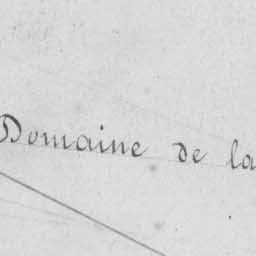 Domaine de la